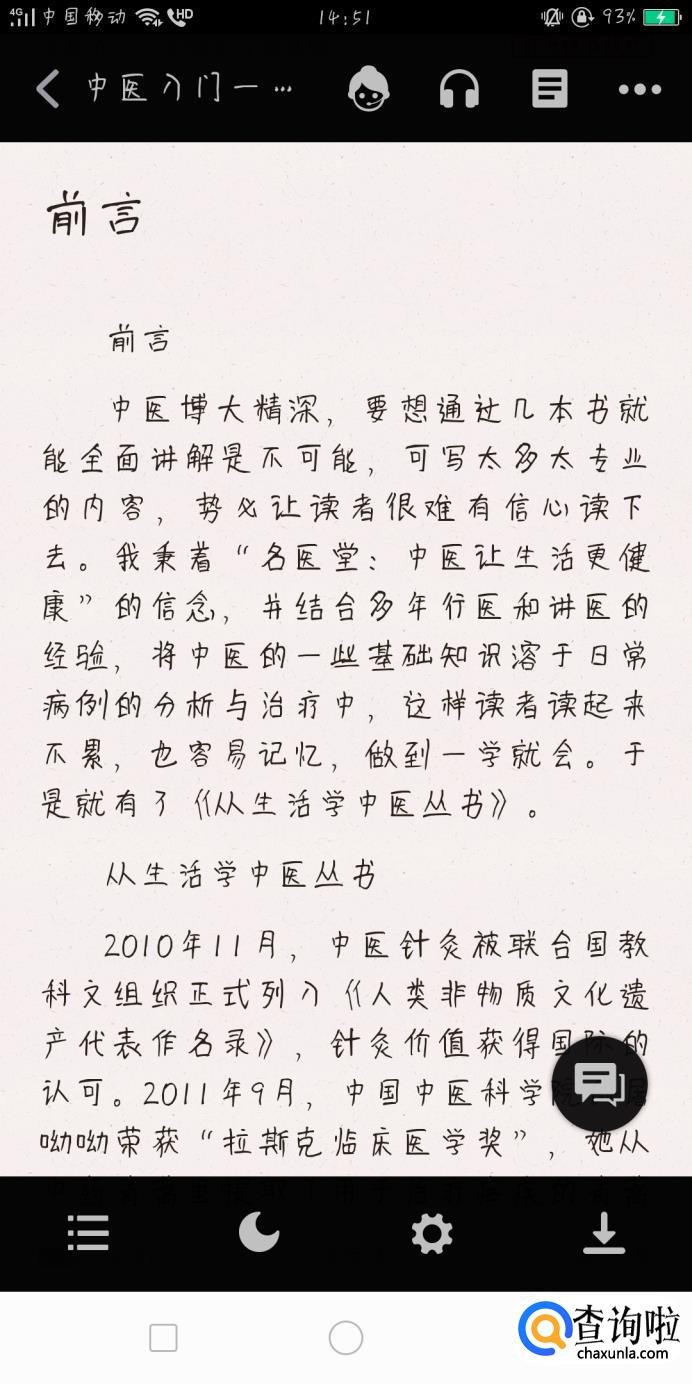 4G 中国移动 HD 14:51 93%
中医入门一…
前言
前言
中医博大精深，要想通过几本书就
能全面讲解是不可能，可写太多太专业
的内容，势必让读者很难有信心读下
去。我秉着“名医堂：中医让生活更健
康”的信念，并结合多年行医和讲医的
经验，将中医的一些基础知识溶于日常
病例的分析与治疗中，这样读者读起来
不累，也容易记忆，做到一学就会。于
是就有了《从生活学中医丛书》。
从生活学中医丛书
2010年11月，中医针灸被联合国教
科文组织正式列入《人类非物质文化遗
产代表作名录》，针灸价值获得国际的
认可。2011年9月，中国中医科学院屠
呦呦荣获“拉斯克临床医学奖”，她从
查询啦
chaxunla.com